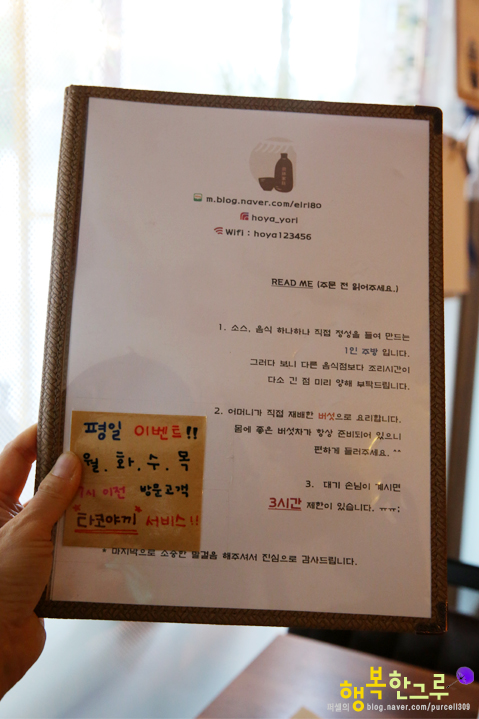 m.blog.naver.com/elri80
hoya_yori
Wifi : hoya123456
READ ME (주문 전 읽어주세요.)
1. 소스, 음식 하나하나 직접 정성을 들여 만드는
1인 주방 입니다.
그러다 보니 다른 음식점보다 조리시간이
다소 긴 점 미리 양해 부탁드립니다.
2. 어머니가 직접 재배한 버섯으로 요리합니다.
몸에 좋은 버섯차가 항상 준비되어 있으니
편하게 들러주세요. ^^
3. 대기 손님이 계시면
3시간 제한이 있습니다. ㅠㅠ;
* 마지막으로 소중한 발걸음 해주셔서 진심으로 감사드립니다.
평일 이벤트!!
월. 화. 수. 목
시 이전 방문고객
"타코야끼" 서비스!!
행복한그루
퍼셀의 blog.naver.com/purcell309